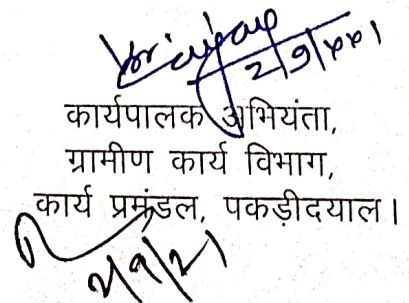 कार्यपालक अभियंता,
ग्रामीण कार्य विभाग,
कार्य प्रमंडल, पकड़ीदयाल।
2/9/21